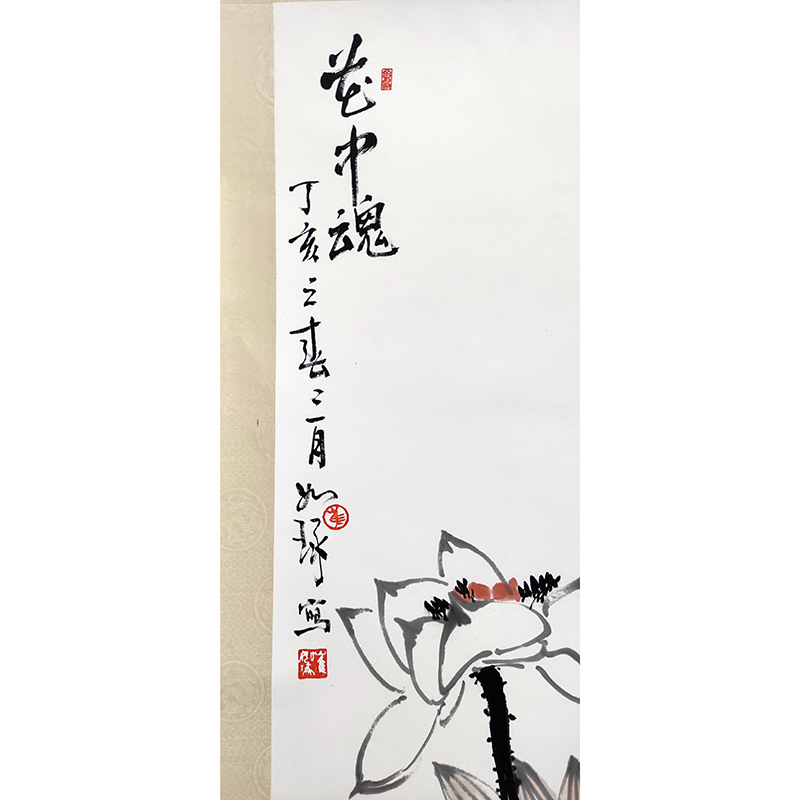 花中魂
丁亥之春三月如琢寫